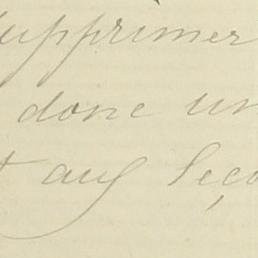 supprimer
donc un
t aux Seco